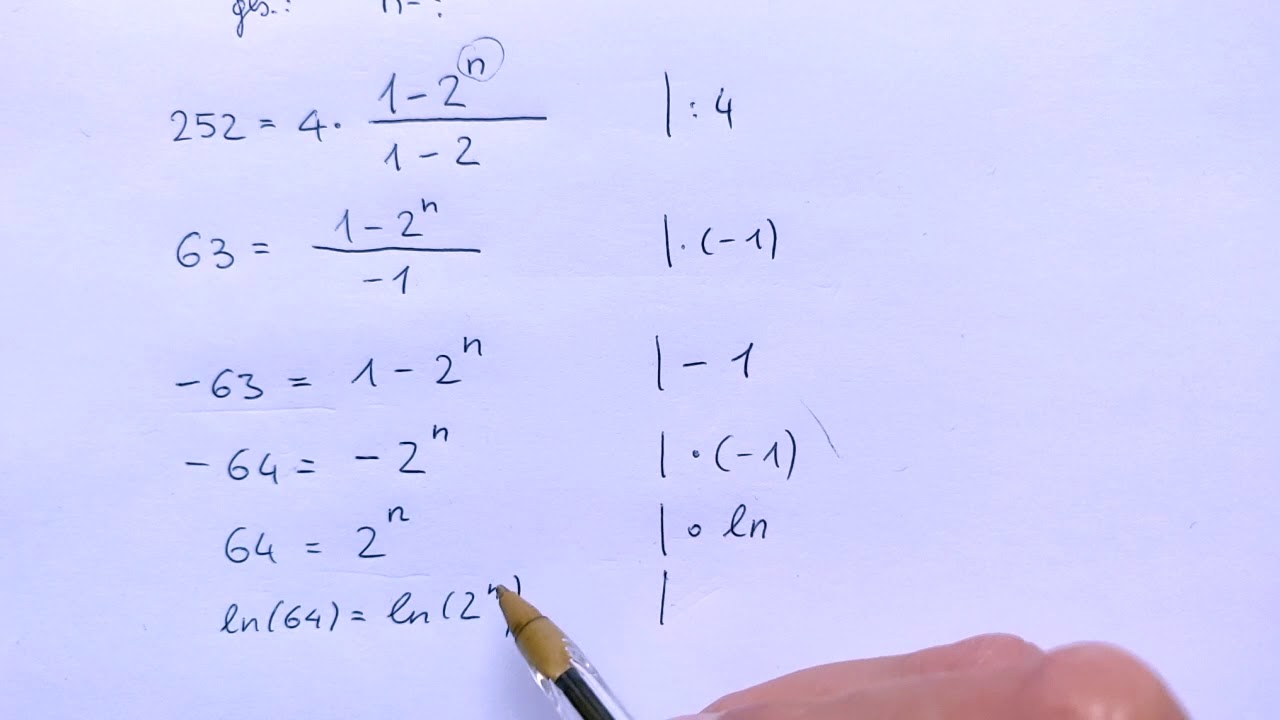 ges.: n = ?
252 = 4 · (1 - 2^n)/(1 - 2) | : 4
63 = (1 - 2^n)/(-1) | · (-1)
-63 = 1 - 2^n | - 1
-64 = -2^n | · (-1)
64 = 2^n | ∘ ln
ln(64) = ln(2^n) |